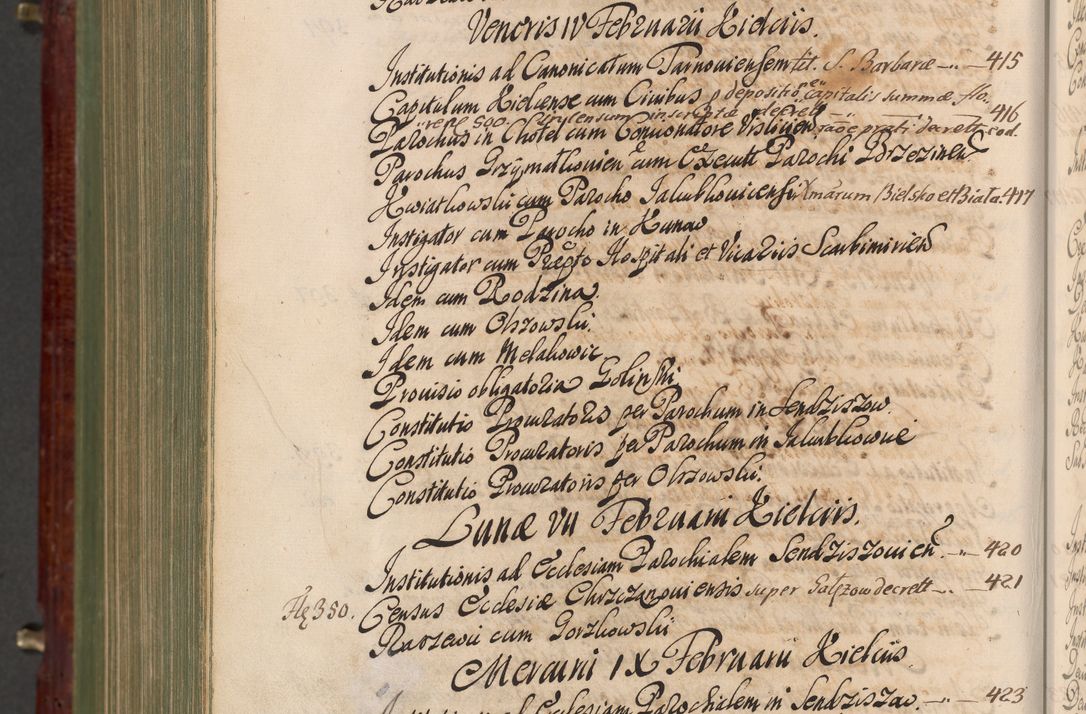 Veneris IV Februarii Kielciis.
Institutionis ad Canonicatum Tarnoviensem tit. S. Barbaræ 415
Capitulum Kielcense cum Civibus p depositio Capitalis summæ flo.
reᷓ 500. censum inscriptæ decrett 416
Parochus in Chotel cum Convonatore Vislicien ratoe prati decrett. eod.
Parochus Grzymałkovien cum Executt Parochi Brzezinen
Kwiatkowski cum Parocho Jakubkovicensi Xmarum Bielsko et Biała. 417
Instigator cum Parocho in Kunow
Instigator cum Præpto Hospitali et Vicariis Scarbimirien
Idem cum Rodzina.
Idem cum Olszowski.
Idem cum Melakowic
Provisio obligatoria Golinski
Constitutio Procuratoris per Parochum in Sendziszow.
Constitutio Procuratoris per Parochum in Jakubkowice
Constitutio Procuratoris per Olszowski.
Lunæ VII Februarii Kielciis.
Institutionis ad Ecclesiam Parochialem Sendziszovien. 420
Flg 350. Census Ecclesiæ Chrzczanoviensis super Gałęzow decrett 421
Karzewii cum Gorzkowski
Mercurii IX Februarii Kielciis
ad Ecclesiam Parochialem in Sendziszow. 423